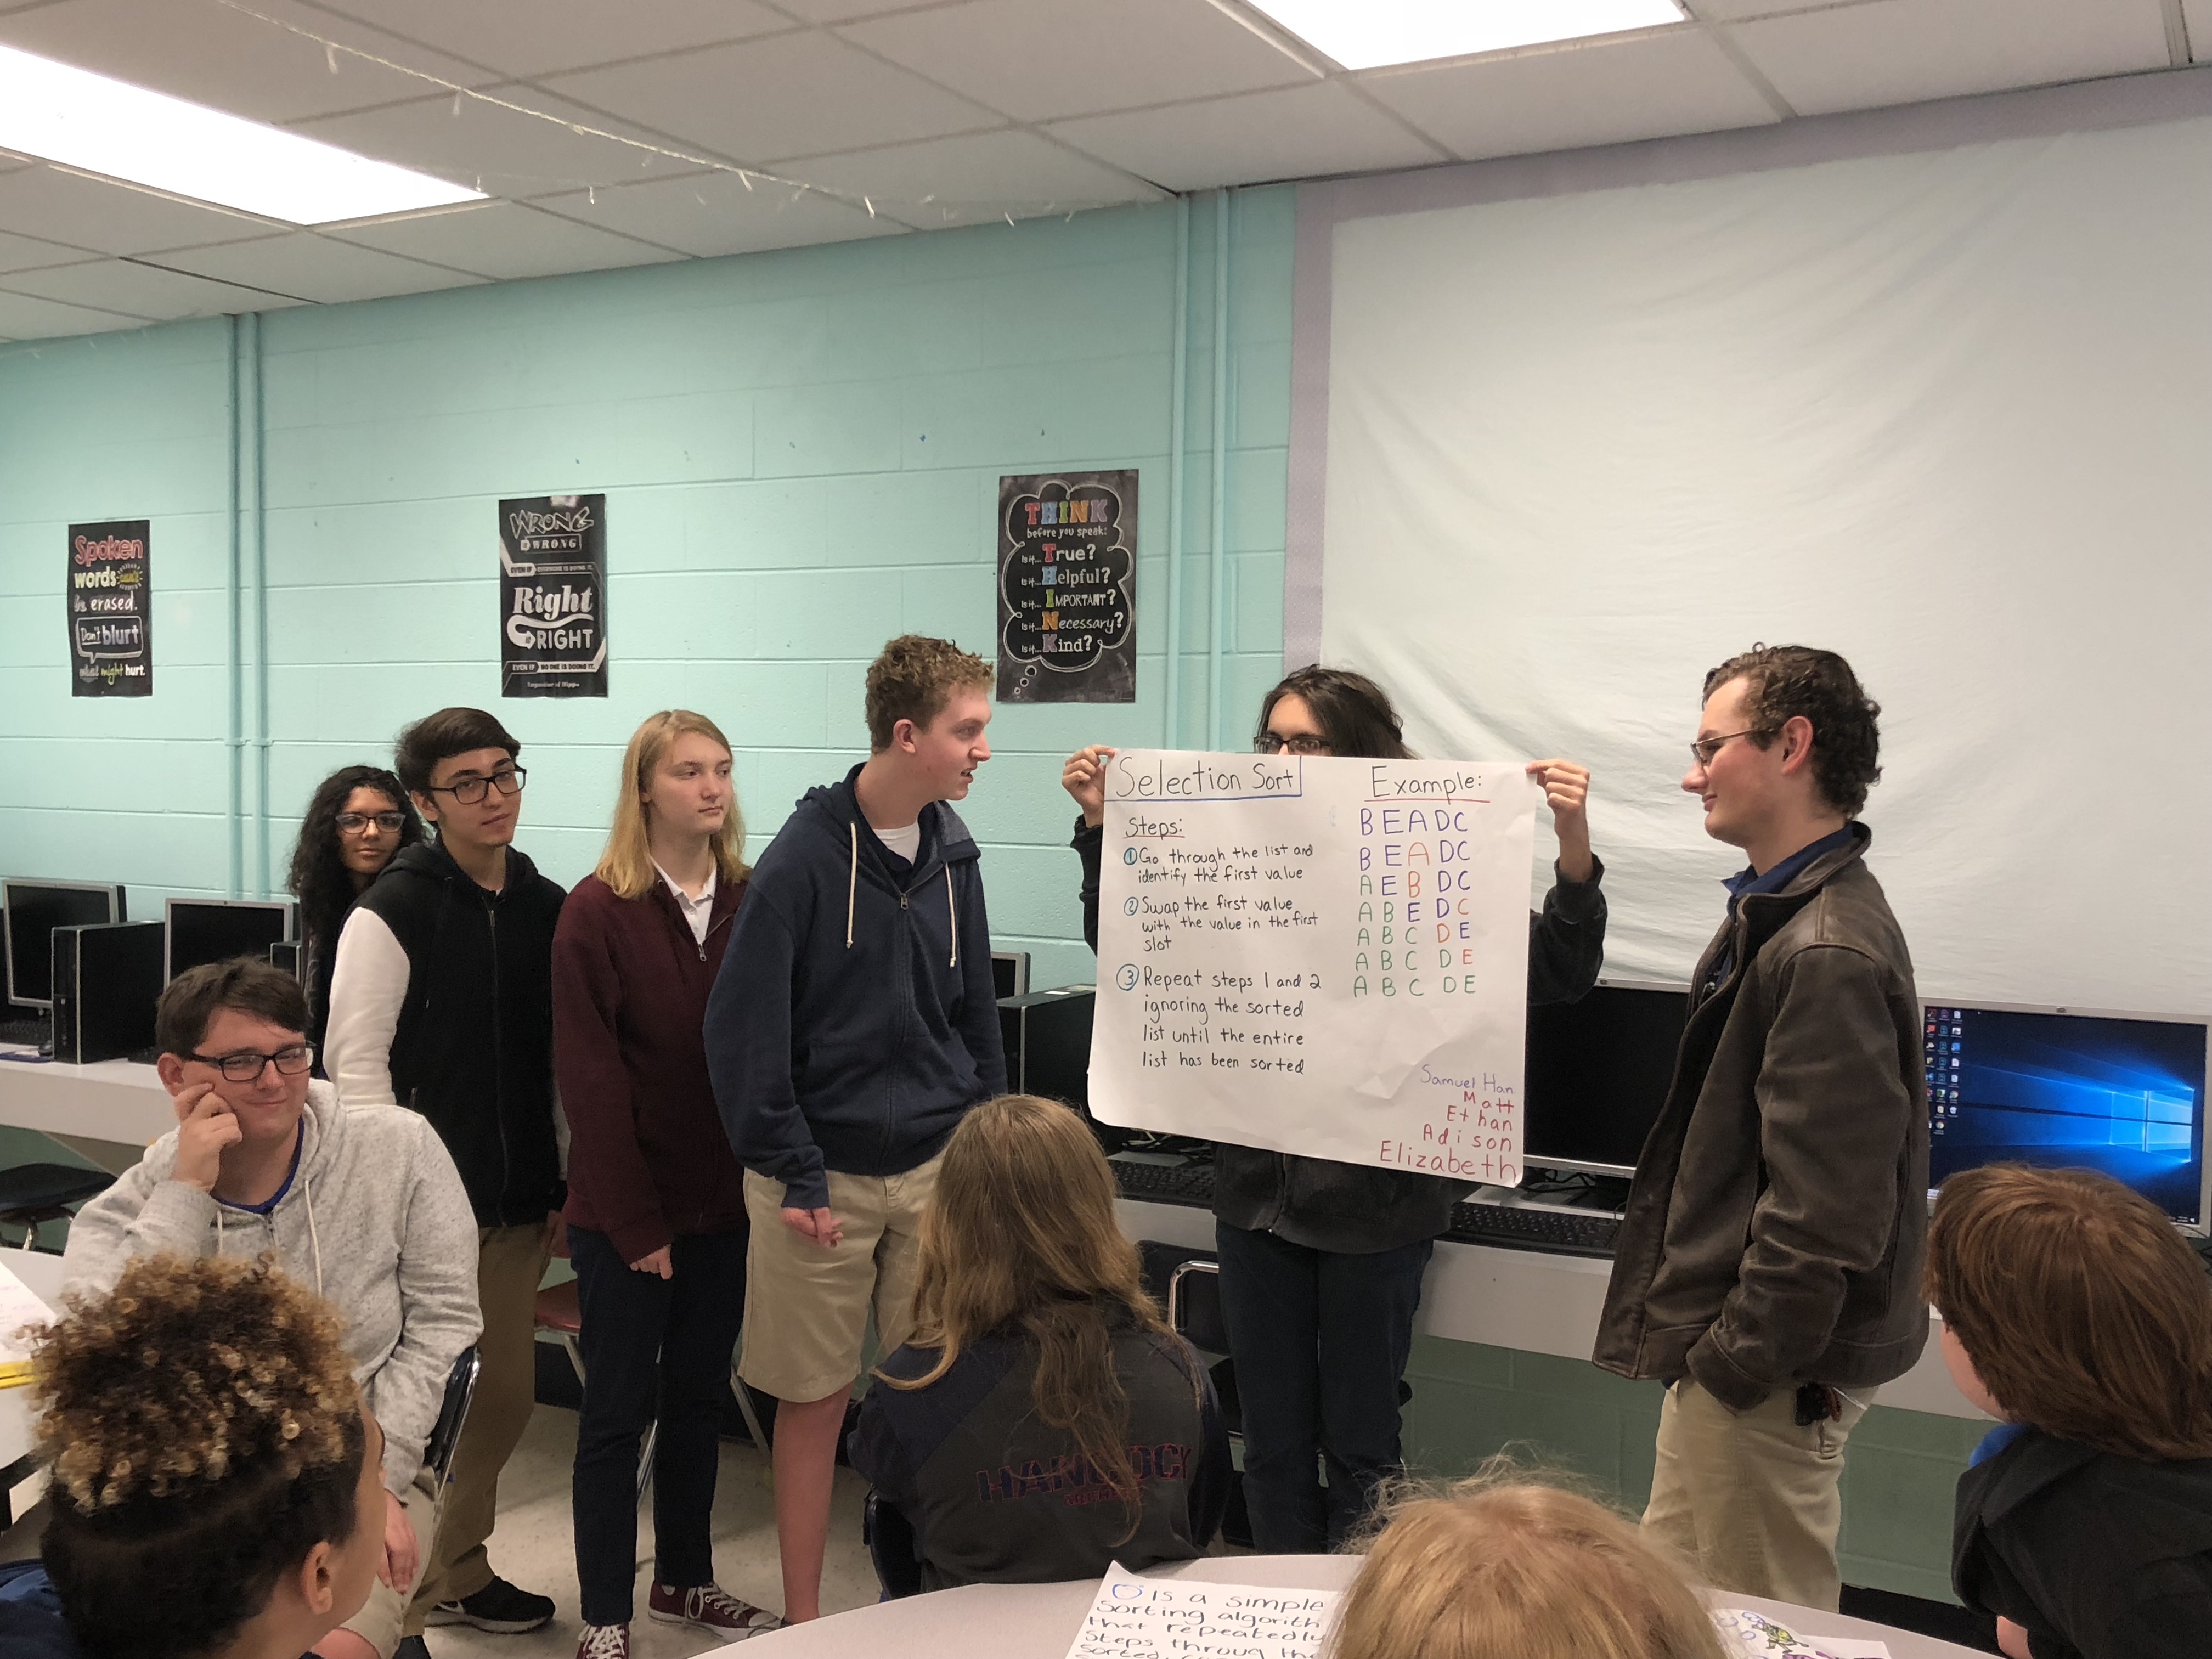 Spoken
words
be erased.
Don't blurt
what might hurt.
WRONG
IS WRONG
EVEN IF EVERYONE IS DOING IT.
Right
is RIGHT
EVEN IF NO ONE IS DOING IT.
THINK
before you speak:
Is it... True?
Is it... Helpful?
Is it... IMPORTANT?
Is it... Necessary?
Is it... Kind?
Selection Sort
Steps:
1 Go through the list and
identify the first value
2 Swap the first value
with the value in the first
slot
3 Repeat steps 1 and 2
ignoring the sorted
list until the entire
list has been sorted
Example:
B E A D C
B E A D C
A E B D C
A B E D C
A B C D E
A B C D E
A B C D E
Samuel Han
Matt
Ethan
Adison
Elizabeth
HANCOCK
is a simple
sorting algorith
that repeatedly
steps through the